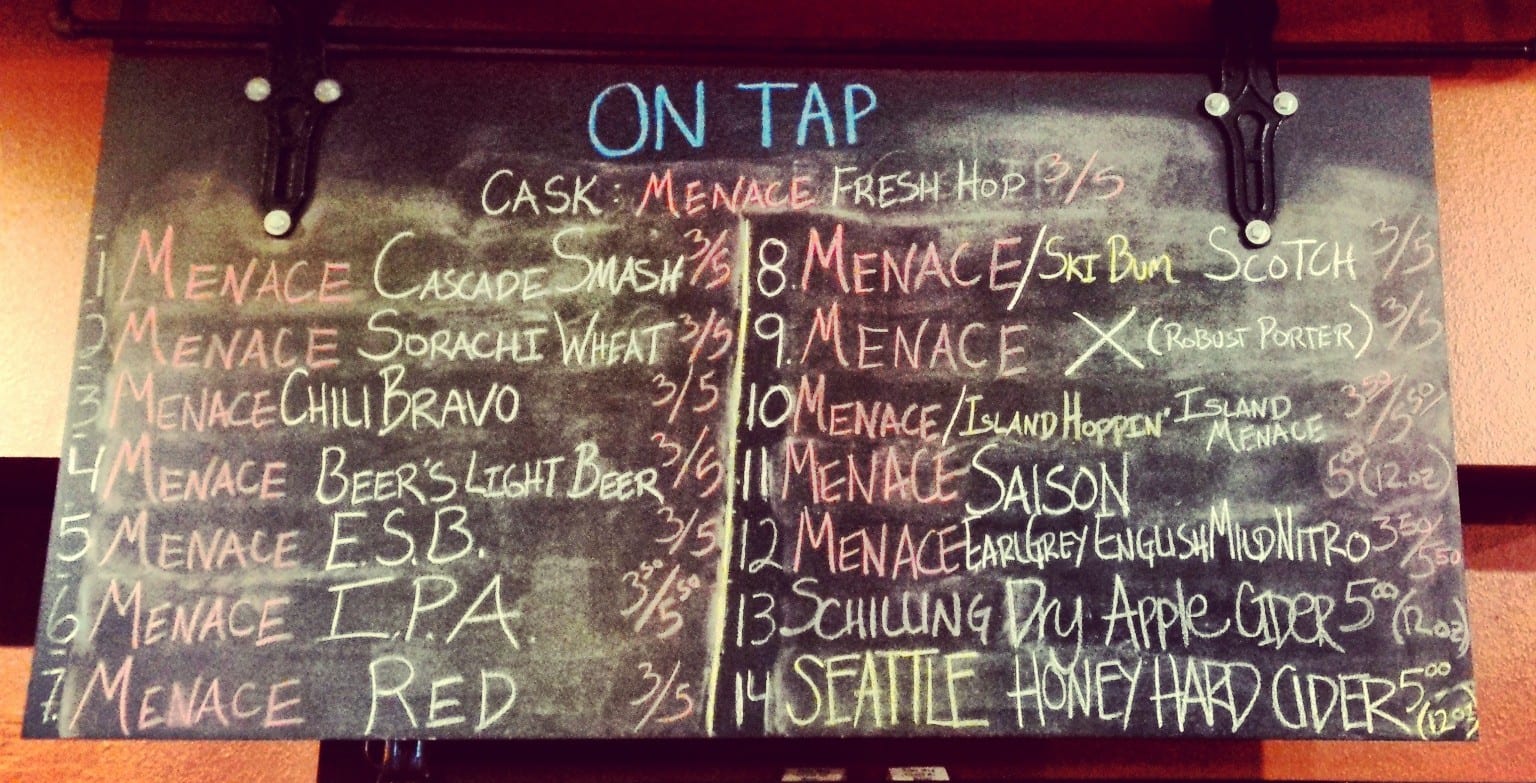 ON TAP
CASK: MENACE FRESH HOP 3/5
1 MENACE CASCADE SMASH 3/5
2 MENACE SORACHI WHEAT 3/5
3 MENACE CHILI BRAVO 3/5
4 MENACE BEER'S LIGHT BEER 3/5
5 MENACE E.S.B. 3/5
6 MENACE I.P.A. 3⁵⁰/5⁵⁰
7. MENACE RED 3/5
8. MENACE/SKI BUM SCOTCH 3/5
9. MENACE X (ROBUST PORTER) 3/5
10 MENACE/ISLAND HOPPIN' ISLAND MENACE 3⁵⁰/5⁵⁰
11 MENACE SAISON 5⁰⁰ (12.oz)
12 MENACE EARL GREY ENGLISH MILD NITRO 3⁵⁰/5⁵⁰
13 SCHILLING Dry Apple CIDER 5⁰⁰ (12.oz)
14 SEATTLE HONEY HARD CIDER 5⁰⁰ (12oz)